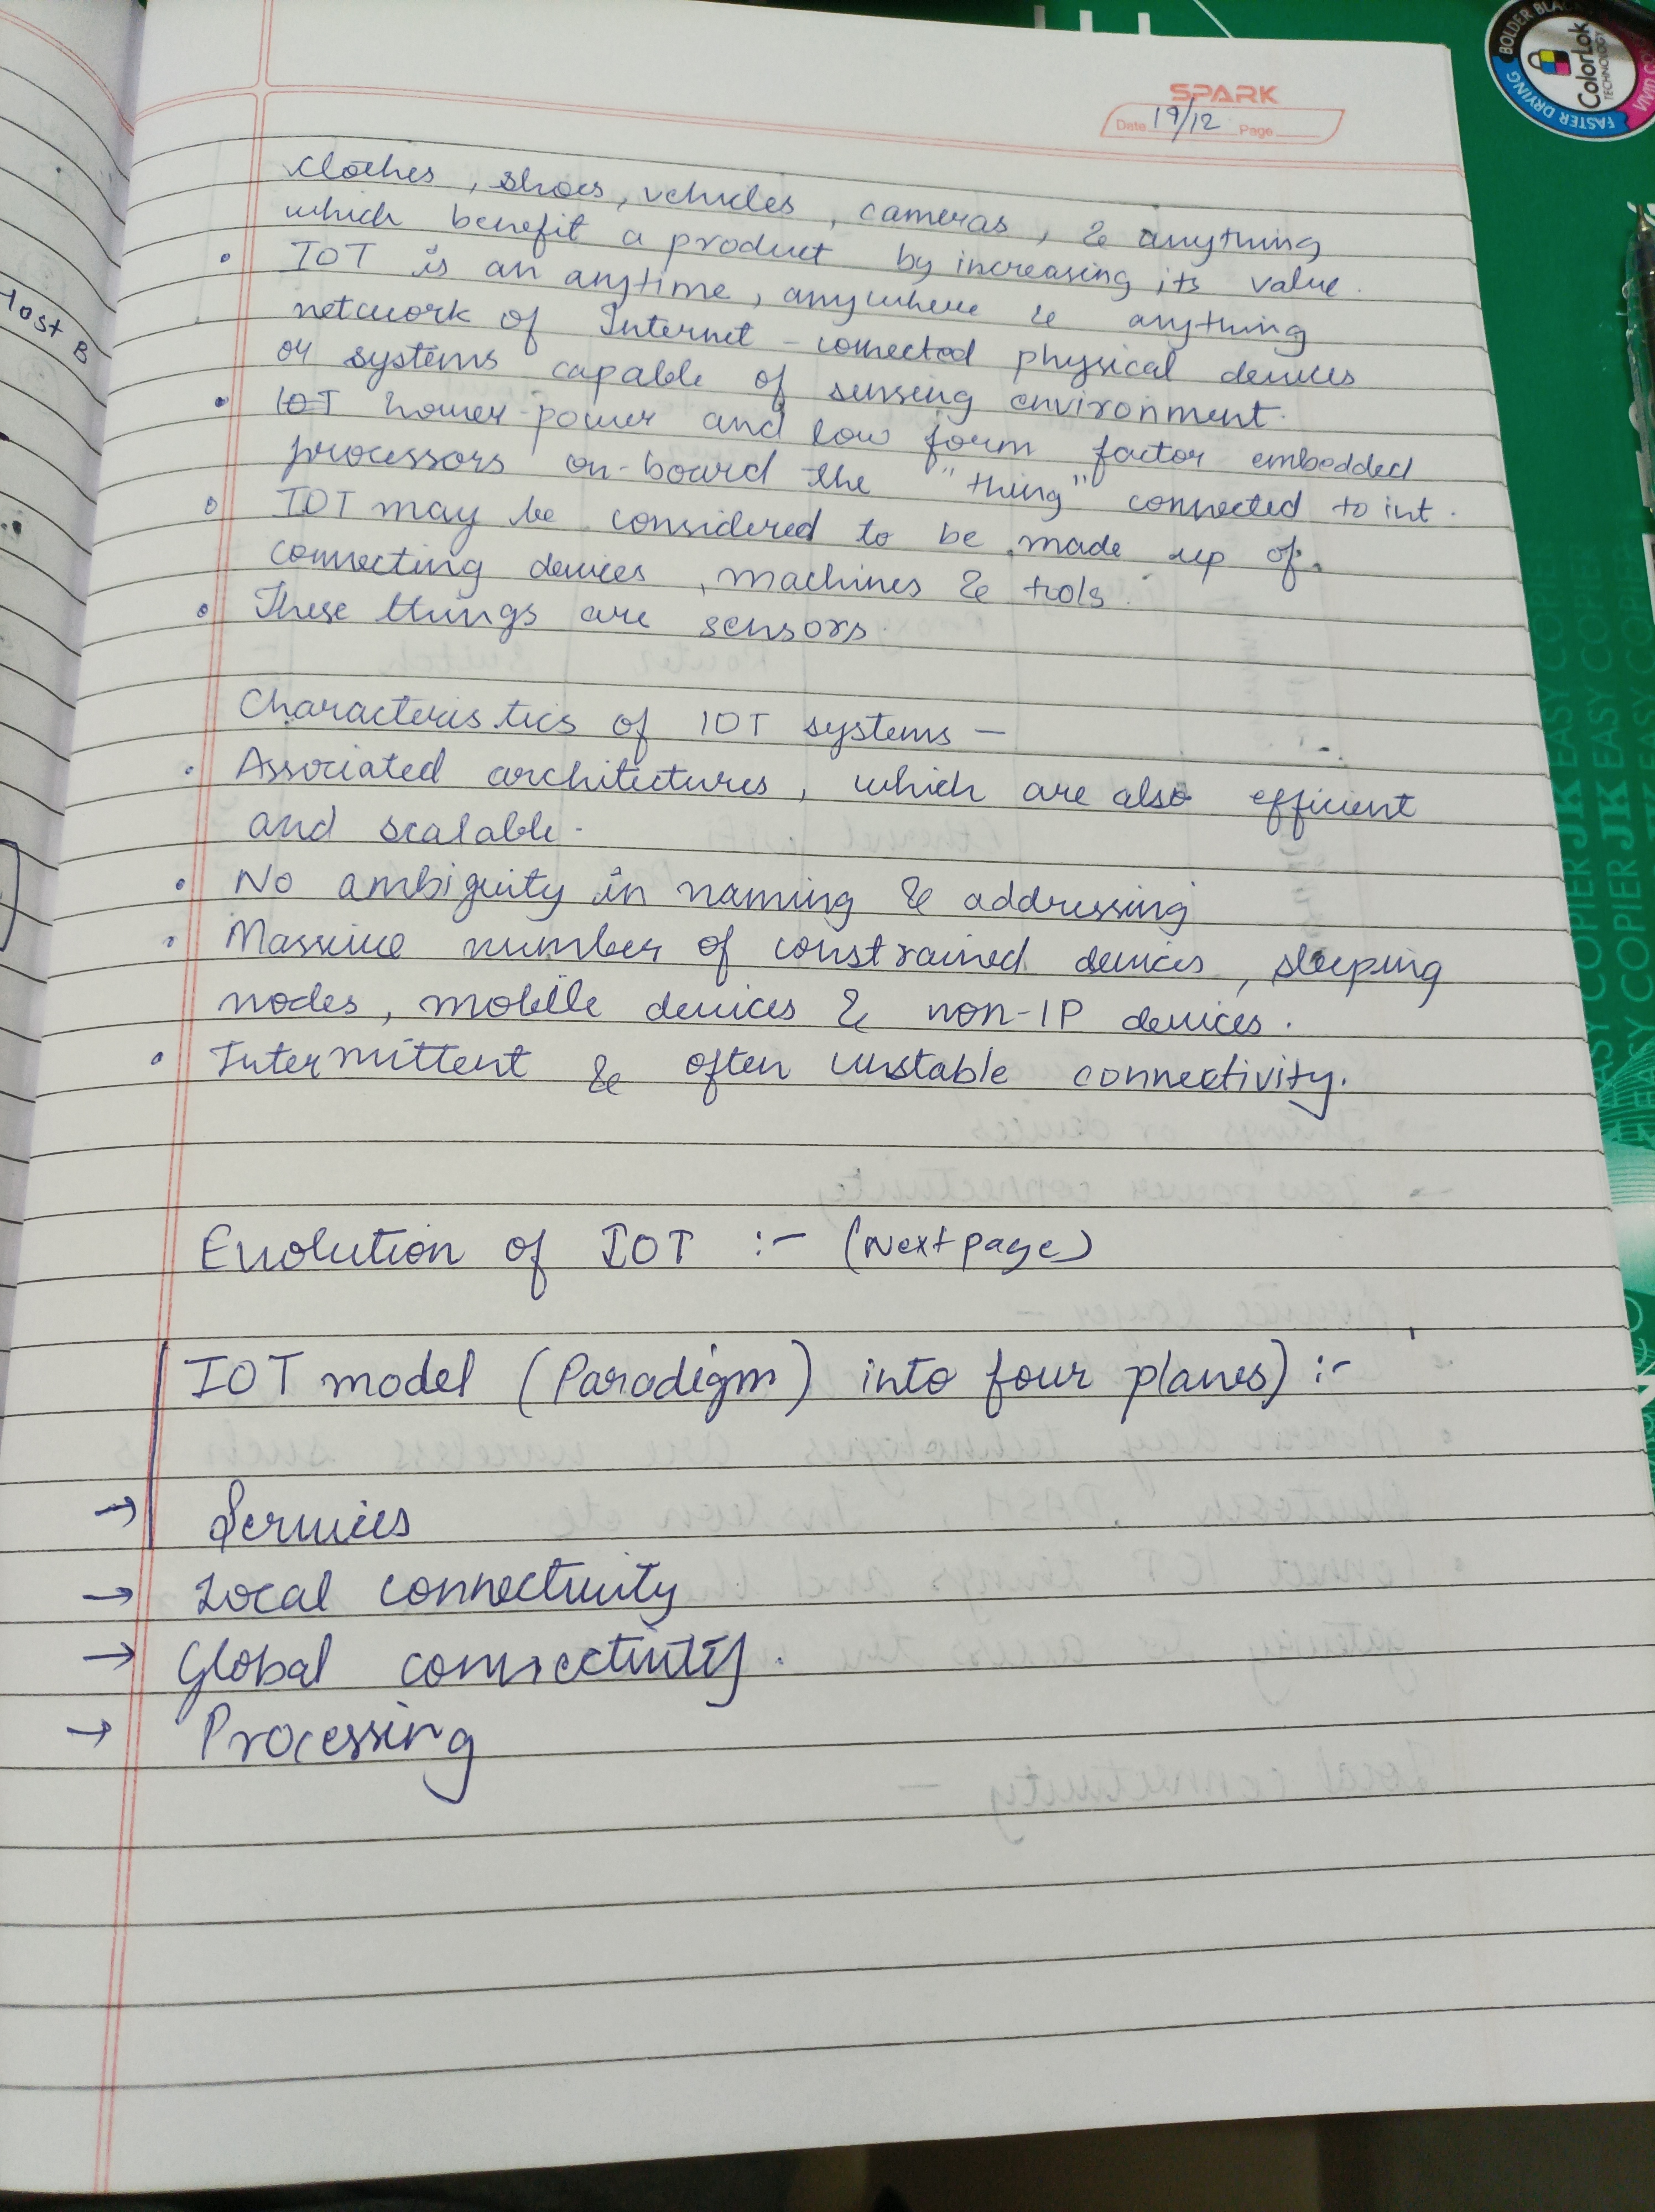 SPARK
Date 19/12 Page
clothes, shoes, vehicles, cameras, & anything
which benefit a product by increasing its value.
• IOT is an anytime, anywhere & anything
network of Internet-connected physical devices
or systems capable of sensing environment.
• IOT lower-power and low form factor embedded
processors on-board the "thing" connected to int.
• IOT may be considered to be made up of
connecting devices, machines & tools.
• These things are sensors.
Characteristics of IOT systems -
• Associated architectures, which are also efficient
and scalable.
• No ambiguity in naming & addressing
• Massive number of constrained devices, sleeping
nodes, mobile devices & non-IP devices.
• Intermittent & often unstable connectivity.
Evolution of IOT :- (Next page)
IOT model (Paradigm) into four planes) :-
→ Services
→ Local connectivity
→ Global connectivity.
→ Processing
Host B
BOLDER BLACK
ColorLok
TECHNOLOGY
FASTER DRYING
JK EASY COPIER